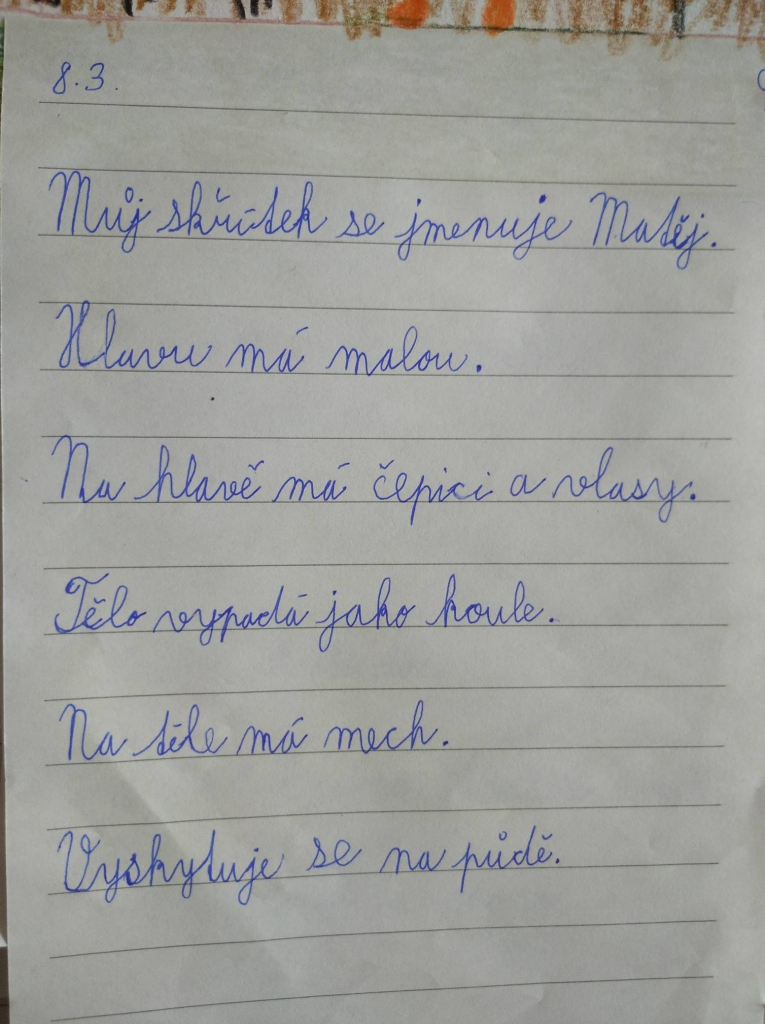 8.3.
Můj skřítek se jmenuje Matěj.
Hlavu má malou.
Na hlavě má čepici a vlasy.
Tělo vypadá jako koule.
Na těle má mech.
Vyskytuje se na půdě.